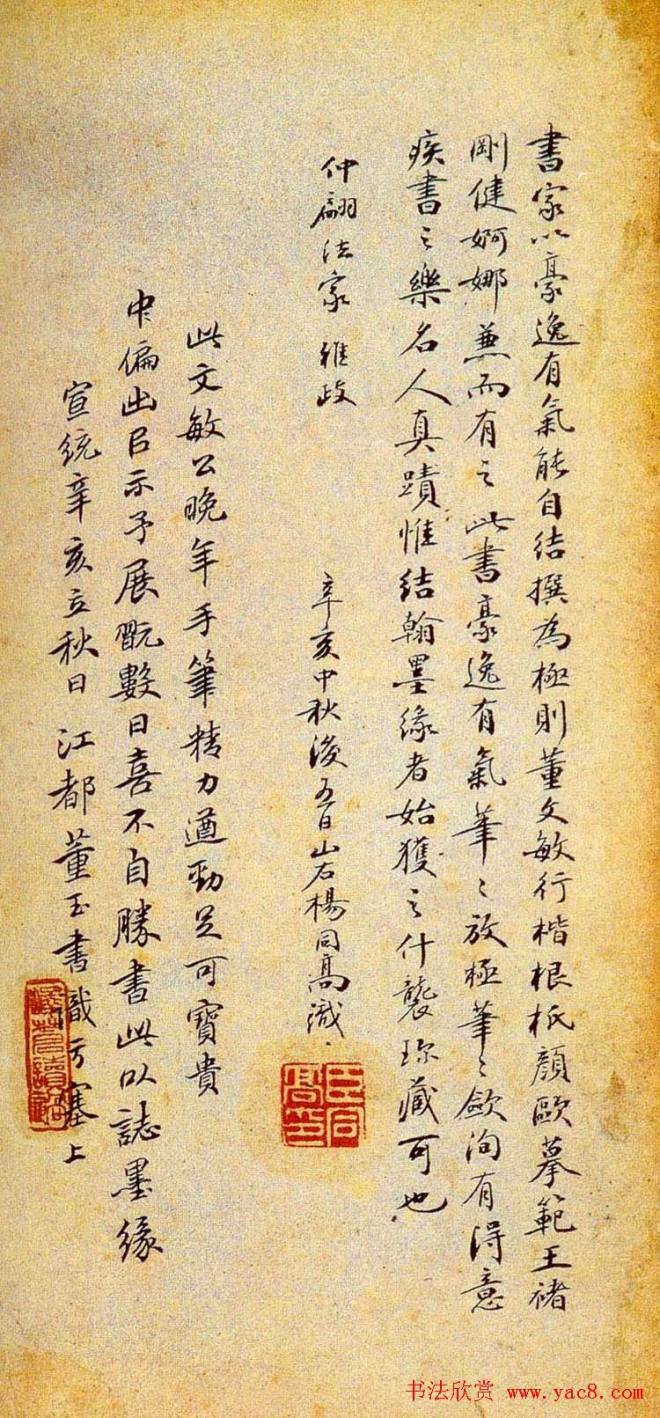 書家以豪逸有氣能自結撰為極則董文敏行楷根柢顏歐摹範王褚
剛健婀娜兼而有之此書豪逸有氣筆〻放極筆〻斂洵有得意
疾書之樂名人真蹟惟結翰墨緣者始獲之什襲珍藏可也
仲翩法家 雅政
辛亥中秋後五日山右楊同高識
此文敏公晚年手筆精力遒勁足可寶貴
中偏出㠯示予展翫數日喜不自勝書此以誌墨緣
宣統辛亥立秋日 江都董玉書識於塞上
臣同高印
书法欣赏 www.yac8.com